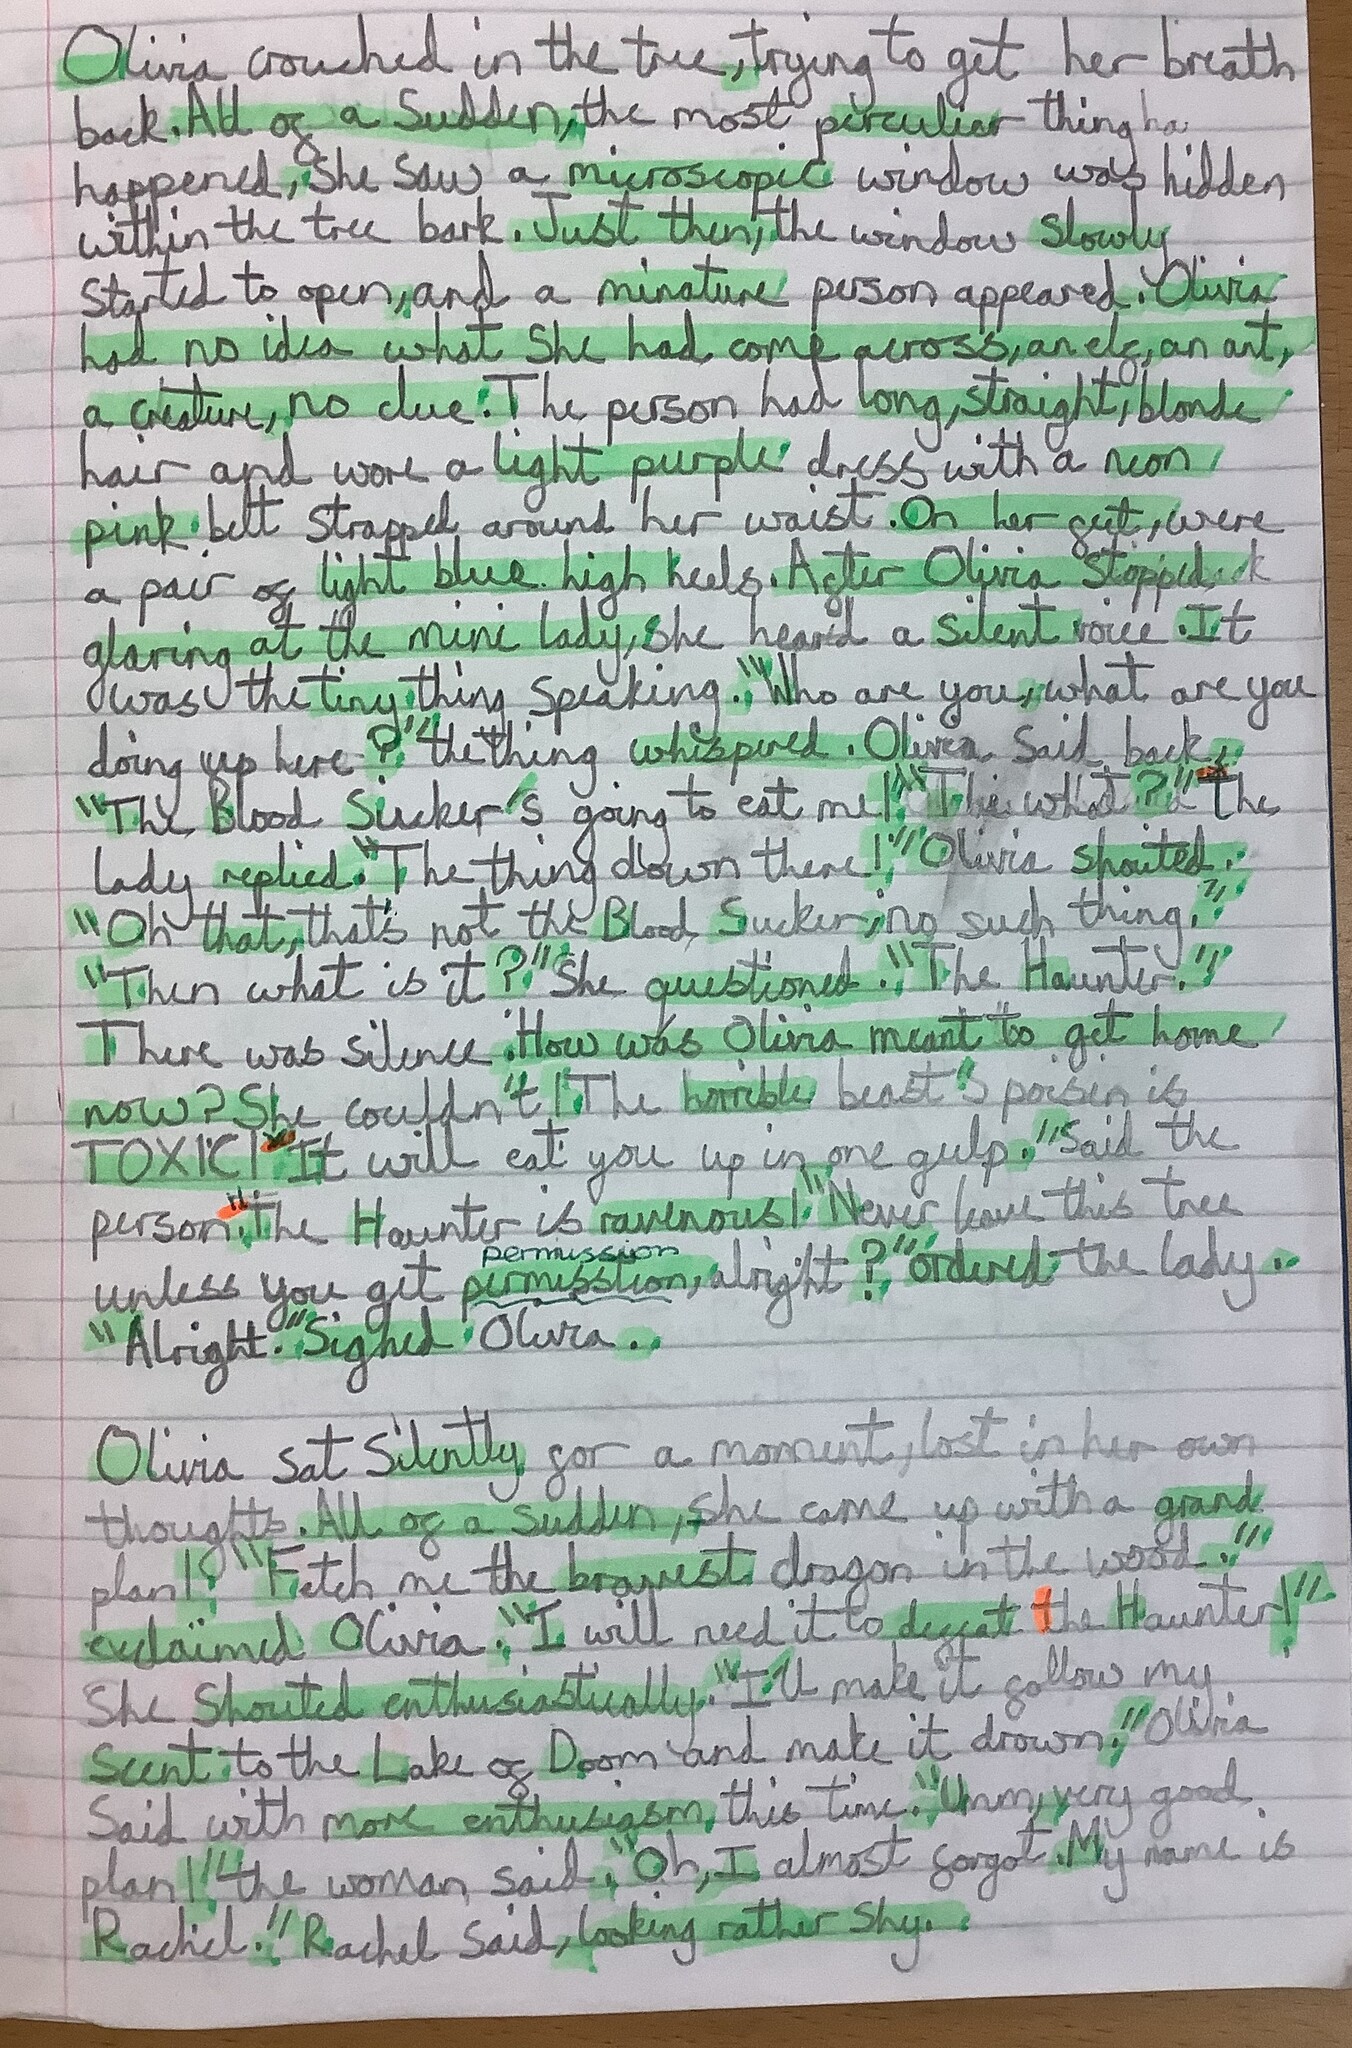 Olivia crouched in the tree, trying to get her breath
back. All of a Sudden, the most perculiar thing ha
happened, She saw a microscopic window was hidden
within the tree bark. Just then, the window slowly
started to open, and a minature person appeared. Olivia
had no idea what she had come across, an elf, an ant,
a creature, no clue. The person had long, straight, blonde
hair and wore a light purple dress with a neon
pink belt strapped around her waist. On her feet, were
a pair of light blue high heels. After Olivia stopped
glaring at the mini lady, she heard a silent voice. It
was the tiny thing speaking. "Who are you, what are you
doing up here?" the thing whispered. Olivia said back,
"The Blood Sucker's going to eat me!" "The what?" The
lady replied. "The thing down there!" Olivia shouted.
"Oh that, that's not the Blood Sucker, no such thing."
"Then what is it?" She questioned. "The Haunter."
There was silence. How was Olivia meant to get home
now? She couldn't! The horrible beast's poisen is
TOXIC! "It will eat you up in one gulp." Said the
person, "The Haunter is ravenous!" "Never leave this tree
permission
unless you get permisstion, alright?" ordered the lady.
"Alright." Sighed Olivia.
Olivia sat silently for a moment, lost in her own
thoughts. All of a sudden, she came up with a grand
plan! "Fetch me the bravest dragon in the wood."
exclaimed Olivia. "I will need it to defeat the Haunter!"
She shouted enthusiastically. "I'll make it follow my
scent to the Lake of Doom and make it drown." Olivia
said with more enthusiasm, this time. "Umm, very good
plan!" the woman said. "Oh, I almost forgot. My name is
Rachel." Rachel said, looking rather shy.